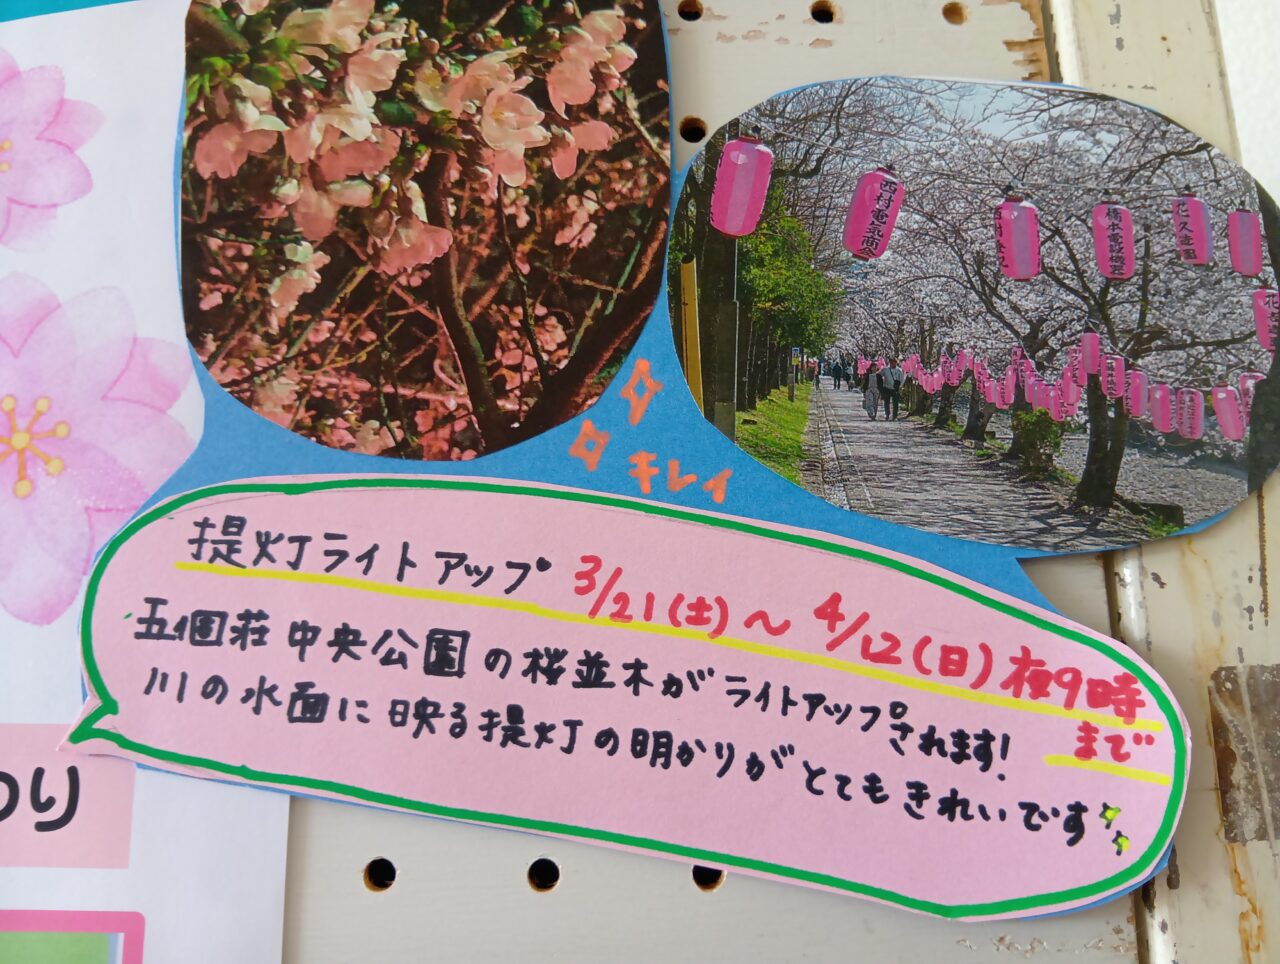 西村電気商会
橋本電機
花久造園
キレイ
提灯ライトアップ 3/21(土)～4/12(日)夜9時まで
五個荘中央公園の桜並木がライトアップされます!
川の水面に映る提灯の明かりがとてもきれいです
わり